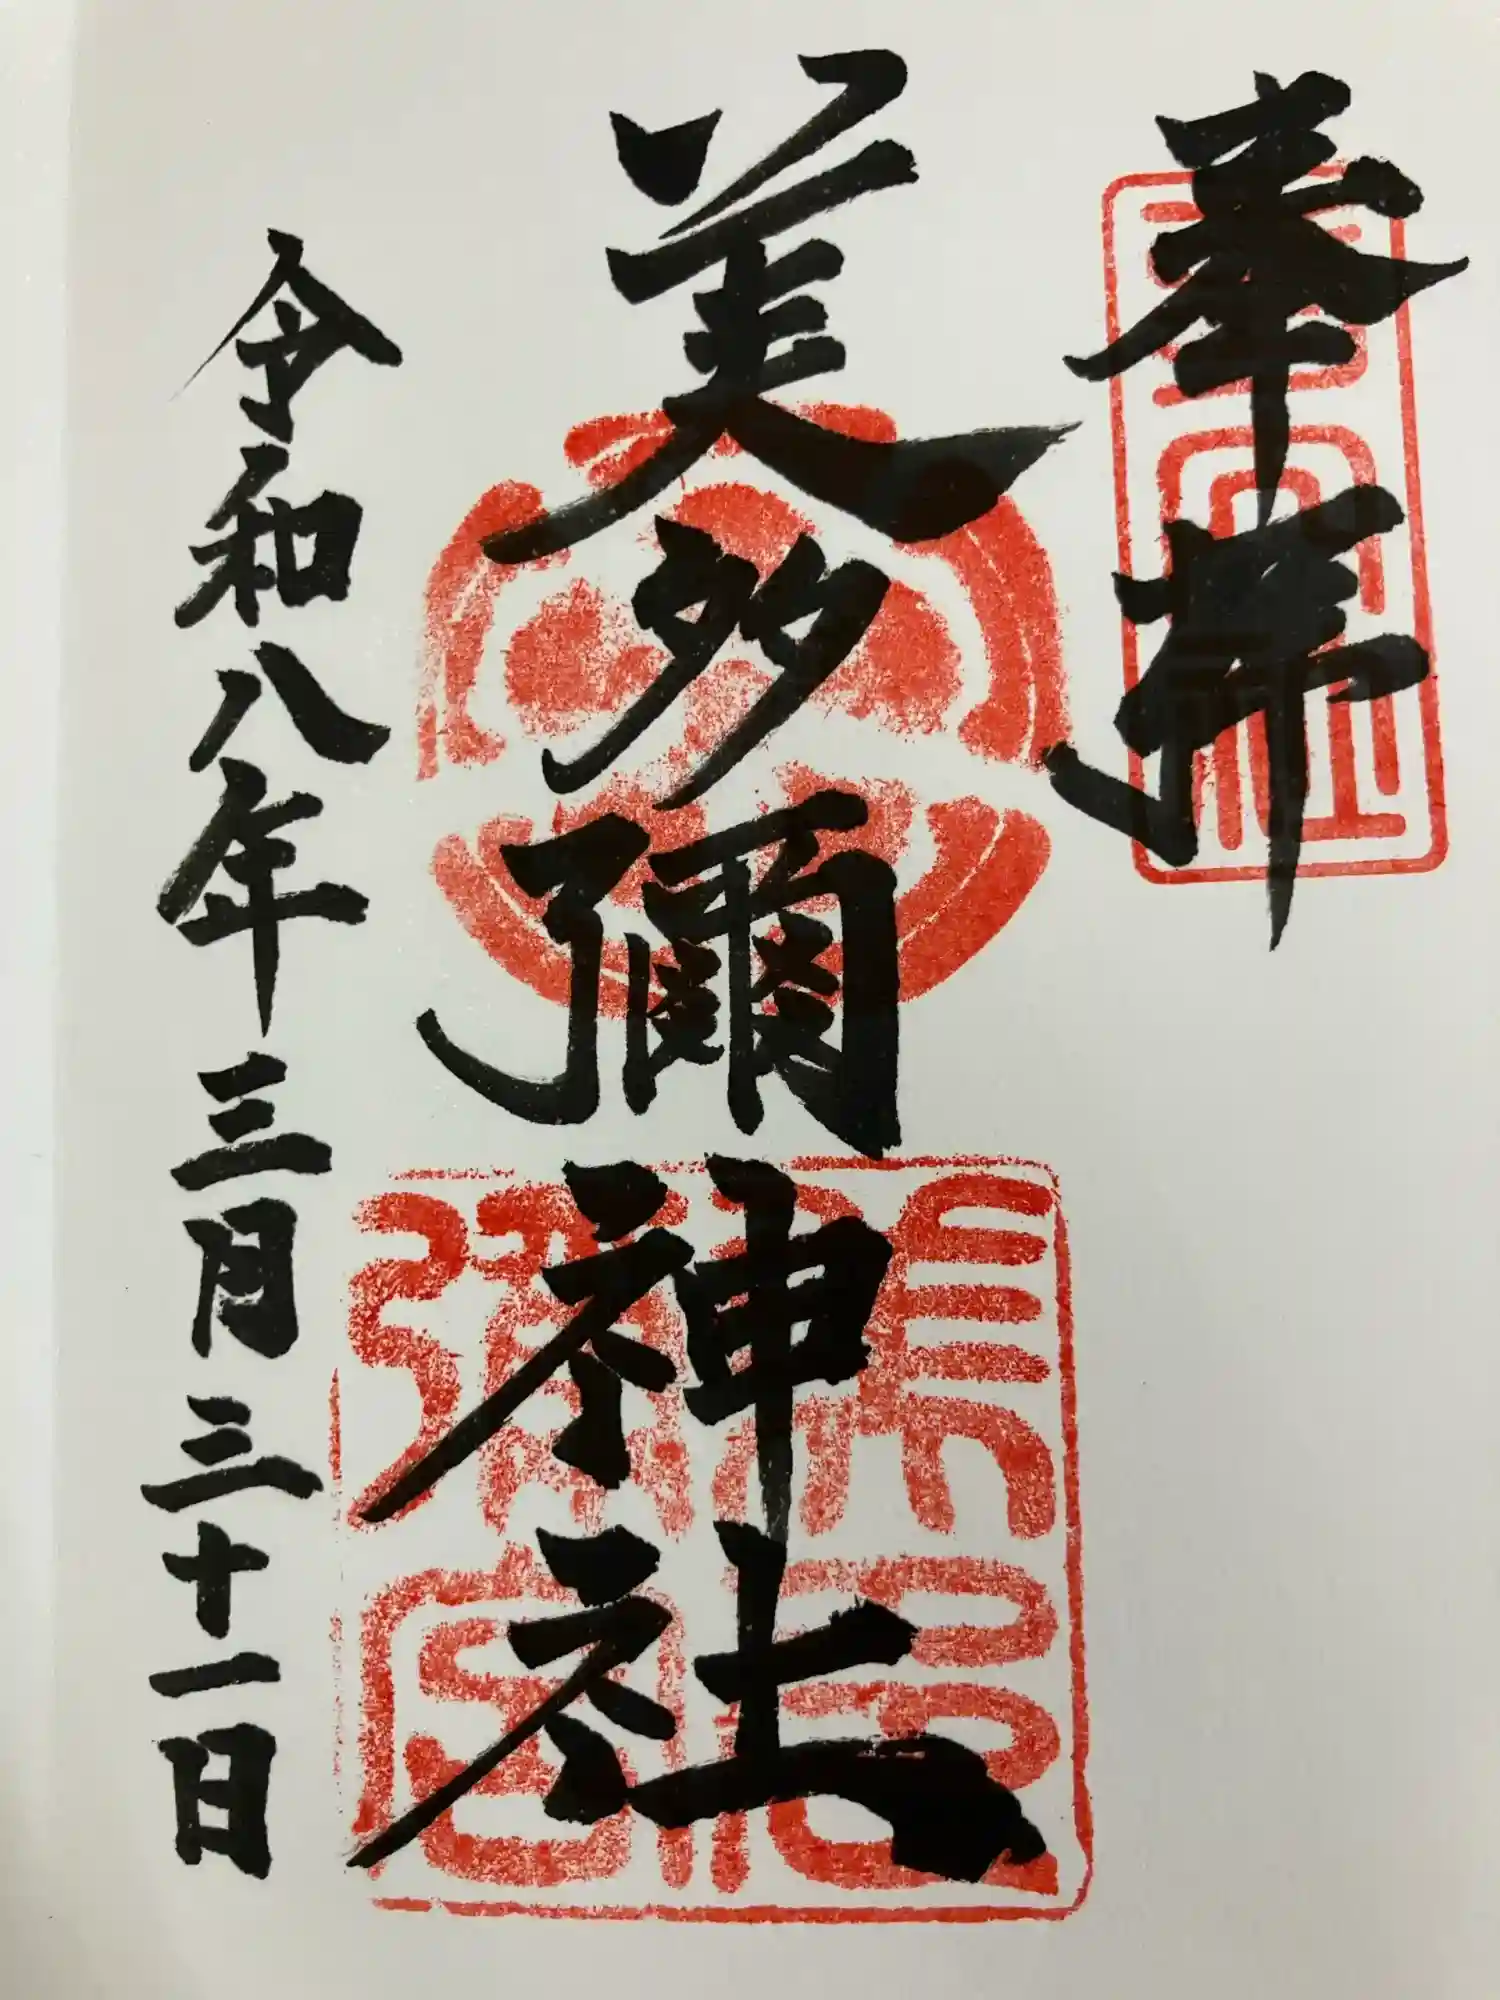 奉拝
美多彌神社
令和八年三月三十一日